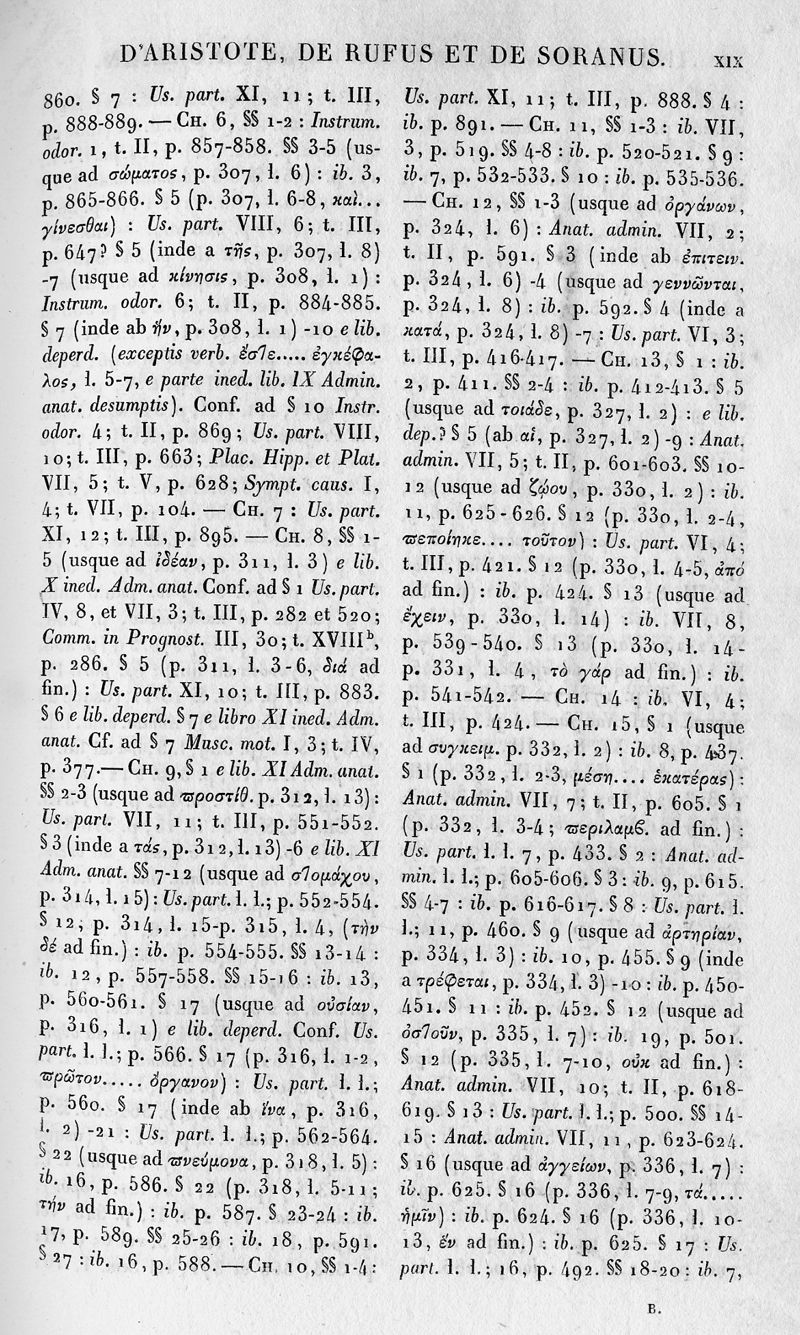 D'ARISTOTE, DE RUFUS ET DE SORANUS. XIX
860. § 7 : Us. part. XI, 11; t. III,
p. 888-889. — CH. 6, §§ 1-2 : Instrum.
odor. 1, t. II, p. 857-858. §§ 3-5 (us-
que ad σώματος, p. 307, l. 6) : ib. 3,
p. 865-866. § 5 (p. 307, l. 6-8, καὶ...
γίνεσθαι) : Us. part. VIII, 6; t. III,
p. 647? § 5 (inde a τῆς, p. 307, l. 8)
-7 (usque ad κίνησις, p. 308, l. 1) :
Instrum. odor. 6; t. II, p. 884-885.
§ 7 (inde ab ἦν, p. 308, l. 1) -10 e lib.
deperd. (exceptis verb. ἐστε..... ἐγκέφα-
λος, l. 5-7, e parte ined. lib. IX Admin.
anat. desumptis). Conf. ad § 10 Instr.
odor. 4; t. II, p. 869; Us. part. VIII,
10; t. III, p. 663; Plac. Hipp. et Plat.
VII, 5; t. V, p. 628; Sympt. caus. I,
4; t. VII, p. 104. — CH. 7 : Us. part.
XI, 12; t. III, p. 895. — CH. 8, §§ 1-
5 (usque ad ἰδέαν, p. 311, l. 3) e lib.
X ined. Adm. anat. Conf. ad § 1 Us. part.
IV, 8, et VII, 3; t. III, p. 282 et 520;
Comm. in Prognost. III, 30; t. XVIIIᵇ,
p. 286. § 5 (p. 311, l. 3-6, διά ad
fin.) : Us. part. XI, 10; t. III, p. 883.
§ 6 e lib. deperd. § 7 e libro XI ined. Adm.
anat. Cf. ad § 7 Musc. mot. I, 3; t. IV,
p. 377. — CH. 9, § 1 e lib. XI Adm. anat.
§§ 2-3 (usque ad προστίθ. p. 312, l. 13) :
Us. part. VII, 11; t. III, p. 551-552.
§ 3 (inde a τάς, p. 312, l. 13) -6 e lib. XI
Adm. anat. §§ 7-12 (usque ad στομάχου,
p. 314, l. 15) : Us. part. l. l.; p. 552-554.
§ 12, p. 314, l. 15-p. 315, l. 4, (τὴν
δέ ad fin.) : ib. p. 554-555. §§ 13-14 :
ib. 12, p. 557-558. §§ 15-16 : ib. 13,
p. 560-561. § 17 (usque ad οὐσίαν,
p. 316, l. 1) e lib. deperd. Conf. Us.
part. l. l.; p. 566. § 17 (p. 316, l. 1-2,
πρῶτον..... ὄργανον) : Us. part. l. l.;
p. 560. § 17 (inde ab ἵνα, p. 316,
l. 2) -21 : Us. part. l. l.; p. 562-564.
§ 22 (usque ad πνεύμονα, p. 318, l. 5) :
ib. 16, p. 586. § 22 (p. 318, l. 5-11;
τήν ad fin.) : ib. p. 587. § 23-24 : ib.
17, p. 589. §§ 25-26 : ib. 18, p. 591.
§ 27 : ib. 16, p. 588. — CH. 10, §§ 1-4 :
Us. part. XI, 11; t. III, p. 888. § 4 :
ib. p. 891. — CH. 11, §§ 1-3 : ib. VII,
3, p. 519. §§ 4-8 : ib. p. 520-521. § 9 :
ib. 7, p. 532-533. § 10 : ib. p. 535-536.
— CH. 12, §§ 1-3 (usque ad ὀργάνων,
p. 324, l. 6) : Anat. admin. VII, 2;
t. II, p. 591. § 3 (inde ab ἐπιτειν.
p. 324, l. 6) -4 (usque ad γεννῶνται,
p. 324, l. 8) : ib. p. 592. § 4 (inde a
κατά, p. 324, l. 8) -7 : Us. part. VI, 3;
t. III, p. 416-417. — CH. 13, § 1 : ib.
2, p. 411. §§ 2-4 : ib. p. 412-413. § 5
(usque ad τοιάδε, p. 327, l. 2) : e lib.
dep.? § 5 (ab αἱ, p. 327, l. 2) -9 : Anat.
admin. VII, 5; t. II, p. 601-603. §§ 10-
12 (usque ad ζῴου, p. 330, l. 2) : ib.
11, p. 625-626. § 12 (p. 330, l. 2-4,
πεποίηκε.... τοῦτον) : Us. part. VI, 4;
t. III, p. 421. § 12 (p. 330, l. 4-5, ἀπό
ad fin.) : ib. p. 424. § 13 (usque ad
ἔχειν, p. 330, l. 14) : ib. VII, 8,
p. 539-540. § 13 (p. 330, l. 14-
p. 331, l. 4, τὸ γάρ ad fin.) : ib.
p. 541-542. — CH. 14 : ib. VI, 4;
t. III, p. 424. — CH. 15, § 1 (usque
ad συγκειμ. p. 332, l. 2) : ib. 8, p. 437.
§ 1 (p. 332, l. 2-3, μέση.... ἑκατέρας) :
Anat. admin. VII, 7; t. II, p. 605. § 1
(p. 332, l. 3-4; περιλαμβ. ad fin.) :
Us. part. l. l. 7, p. 433. § 2 : Anat. ad-
min. l. l.; p. 605-606. § 3 : ib. 9, p. 615.
§§ 4-7 : ib. p. 616-617. § 8 : Us. part. l.
l.; 11, p. 460. § 9 (usque ad ἀρτηρίαν,
p. 334, l. 3) : ib. 10, p. 455. § 9 (inde
a τρέφεται, p. 334, l. 3) -10 : ib. p. 450-
451. § 11 : ib. p. 452. § 12 (usque ad
ὀστοῦν, p. 335, l. 7) : ib. 19, p. 501.
§ 12 (p. 335, l. 7-10, οὐκ ad fin.) :
Anat. admin. VII, 10; t. II, p. 618-
619. § 13 : Us. part. l. l.; p. 500. §§ 14-
15 : Anat. admin. VII, 11, p. 623-624.
§ 16 (usque ad ἀγγείων, p. 336, l. 7) :
ib. p. 625. § 16 (p. 336, l. 7-9, τά.....
ἡμῖν) : ib. p. 624. § 16 (p. 336, l. 10-
13, ἐν ad fin.) : ib. p. 625. § 17 : Us.
part. l. l.; 16, p. 492. §§ 18-20 : ib. 7,
B.